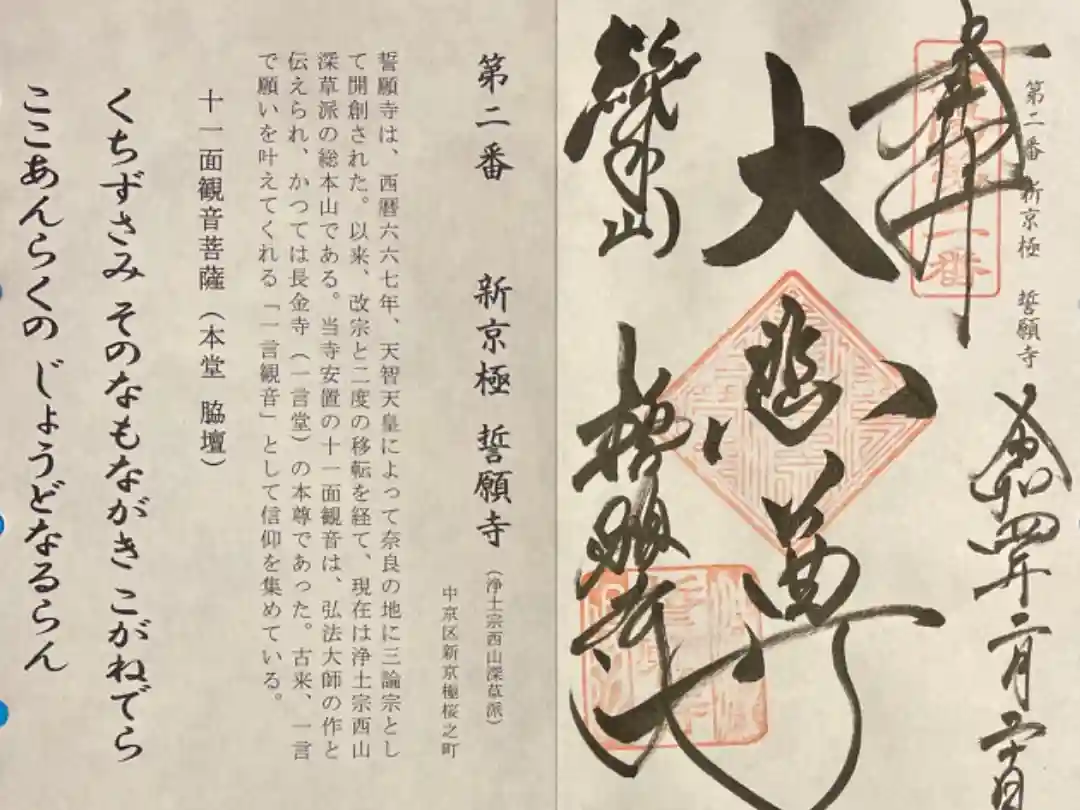 第二番 新京極 誓願寺
奉拝
令和四年二月二十二日
大悲尊
誓願寺
第二番 新京極 誓願寺（浄土宗西山深草派）
中京区新京極桜之町
誓願寺は、西暦六六七年、天智天皇によって奈良の地に三論宗とし
て開創された。以来、改宗と二度の移転を経て、現在は浄土宗西山
深草派の総本山である。当寺安置の十一面観音は、弘法大師の作と
伝えられ、かつては長金寺（一言堂）の本尊であった。古来、一言
で願いを叶えてくれる「一言観音」として信仰を集めている。
十一面観音菩薩（本堂 脇壇）
くちずさみ そのなもながき こがねでら
ここあんらくの じょうどなるらん